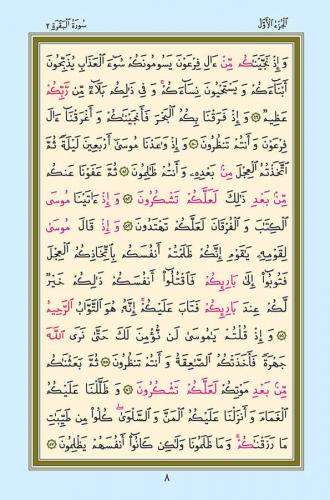 الجزء الأول
سورة البقرة ٢
وَإِذْ نَجَّيْنَاكُم مِّنْ ءَالِ فِرْعَوْنَ يَسُومُونَكُمْ سُوٓءَ الْعَذَابِ يُذَبِّحُونَ
أَبْنَآءَكُمْ وَيَسْتَحْيُونَ نِسَآءَكُمْ ۚ وَفِى ذَٰلِكُم بَلَآءٌ مِّن رَّبِّكُمْ
عَظِيمٌ ﴿٤٩﴾ وَإِذْ فَرَقْنَا بِكُمُ الْبَحْرَ فَأَنجَيْنَاكُمْ وَأَغْرَقْنَآ ءَالَ
فِرْعَوْنَ وَأَنتُمْ تَنظُرُونَ ﴿٥٠﴾ وَإِذْ وَٰعَدْنَا مُوسَىٰٓ أَرْبَعِينَ لَيْلَةً ثُمَّ
اتَّخَذْتُمُ الْعِجْلَ مِنۢ بَعْدِهِۦ وَأَنتُمْ ظَٰلِمُونَ ﴿٥١﴾ ثُمَّ عَفَوْنَا عَنكُم
مِّنۢ بَعْدِ ذَٰلِكَ لَعَلَّكُمْ تَشْكُرُونَ ﴿٥٢﴾ وَإِذْ ءَاتَيْنَا مُوسَى
الْكِتَٰبَ وَالْفُرْقَانَ لَعَلَّكُمْ تَهْتَدُونَ ﴿٥٣﴾ وَإِذْ قَالَ مُوسَىٰ
لِقَوْمِهِۦ يَٰقَوْمِ إِنَّكُمْ ظَلَمْتُمْ أَنفُسَكُم بِاتِّخَاذِكُمُ الْعِجْلَ
فَتُوبُوٓا۟ إِلَىٰ بَارِئِكُمْ فَاقْتُلُوٓا۟ أَنفُسَكُمْ ذَٰلِكُمْ خَيْرٌ
لَّكُمْ عِندَ بَارِئِكُمْ فَتَابَ عَلَيْكُمْ ۚ إِنَّهُۥ هُوَ التَّوَّابُ الرَّحِيمُ
﴿٥٤﴾ وَإِذْ قُلْتُمْ يَٰمُوسَىٰ لَن نُّؤْمِنَ لَكَ حَتَّىٰ نَرَى اللَّهَ
جَهْرَةً فَأَخَذَتْكُمُ الصَّٰعِقَةُ وَأَنتُمْ تَنظُرُونَ ﴿٥٥﴾ ثُمَّ بَعَثْنَٰكُم
مِّنۢ بَعْدِ مَوْتِكُمْ لَعَلَّكُمْ تَشْكُرُونَ ﴿٥٦﴾ وَظَلَّلْنَا عَلَيْكُمُ
الْغَمَامَ وَأَنزَلْنَا عَلَيْكُمُ الْمَنَّ وَالسَّلْوَىٰ ۖ كُلُوا۟ مِن طَيِّبَٰتِ
مَا رَزَقْنَٰكُمْ ۖ وَمَا ظَلَمُونَا وَلَٰكِن كَانُوٓا۟ أَنفُسَهُمْ يَظْلِمُونَ ﴿٥٧﴾
٨